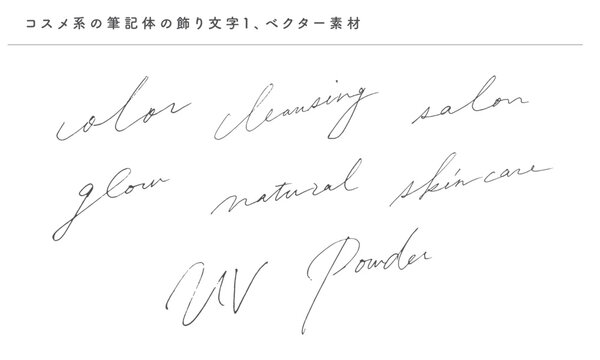 コスメ系の筆記体の飾り文字1、ベクター素材
color cleansing salon
glow natural skincare
UV Powder